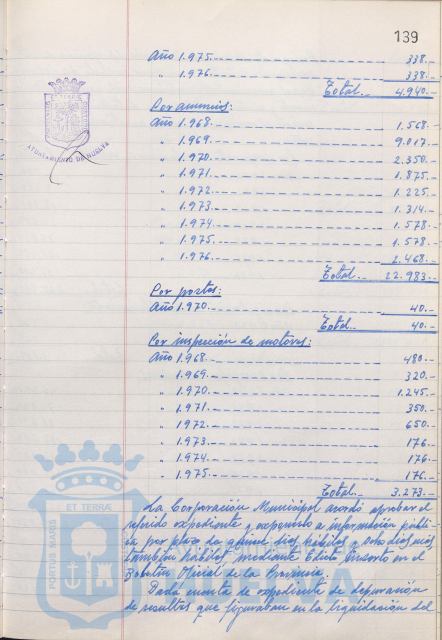 139
Año 1.975. 338.-
" 1.976. 338.-
Total.. 4.940.-
AYUNTAMIENTO DE HUELVA
Por anuncios:
Año 1.968. 1.568.-
" 1.969. 9.017.-
" 1.970. 2.350.-
" 1.971. 1.875.-
" 1.972. 1.225.-
" 1.973. 1.314.-
" 1.974. 1.578.-
" 1.975. 1.578.-
" 1.976. 2.468.-
Total.. 22.983.-
Por postes:
Año 1.970. 40.-
Total.. 40.-
Por inspección de motores:
Año 1.968. 480.-
" 1.969. 320.-
" 1.970. 1.245.-
" 1.971. 350.-
" 1972. 650.-
" 1.973. 176.-
" 1.974. 176.-
" 1.975. 176.-
Total.. 3.273.-
La Corporación Municipal acordó aprobar el
referido expediente y exponerlo a información públi-
ca por plazo de quince días hábiles y ocho días más
también hábiles, mediante Edicto inserto en el
Boletín Oficial de la Provincia.
Dada cuenta de expediente de depuración
de resultas que figuraban en la liquidación del
PORTUS MARIS
ET TERRÆ